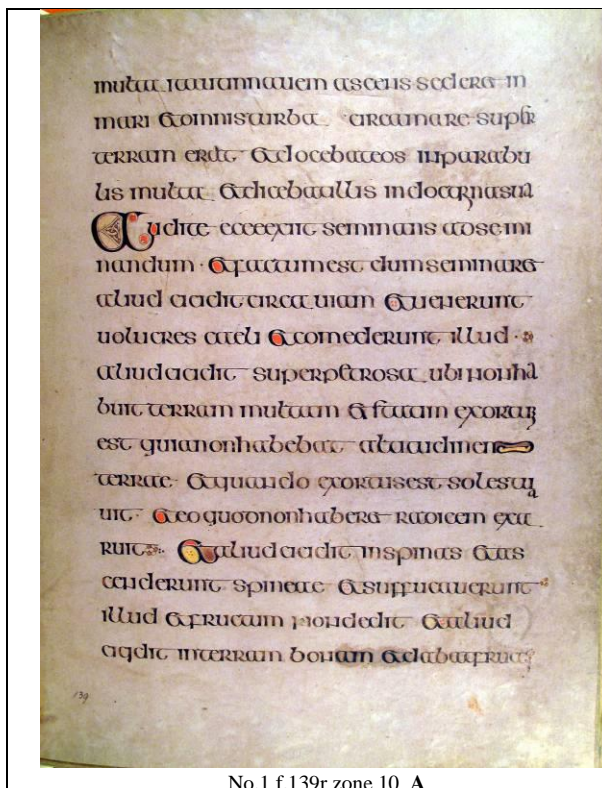 multa ita ut innauem ascens sedere in
mari & omnis turba circa mare super
terram erat & docebat eos inparabu
lis multa & dicebat illis indoctrina sua
Audite ecce exiit seminans adsemi
nandum · & factum est dum seminaret
aliud cecidit circa uiam & uenerunt
uolucres caeli & comederunt illud ·
aliud cecidit super petrosa ubi non ha
buit terram multam & statim exortum
est quia non habebat altitudinem
terrae · & quando exortus est sol estua
uit · & eo quod non haberet radicem exa
ruit & aliud cecidit inspinas & as
cenderunt spineae & suffucauerunt
illud & fructum non dedit & aliud
cecidit interram bonam & dabat fruct
139
No 1 f 139r zone 10 A